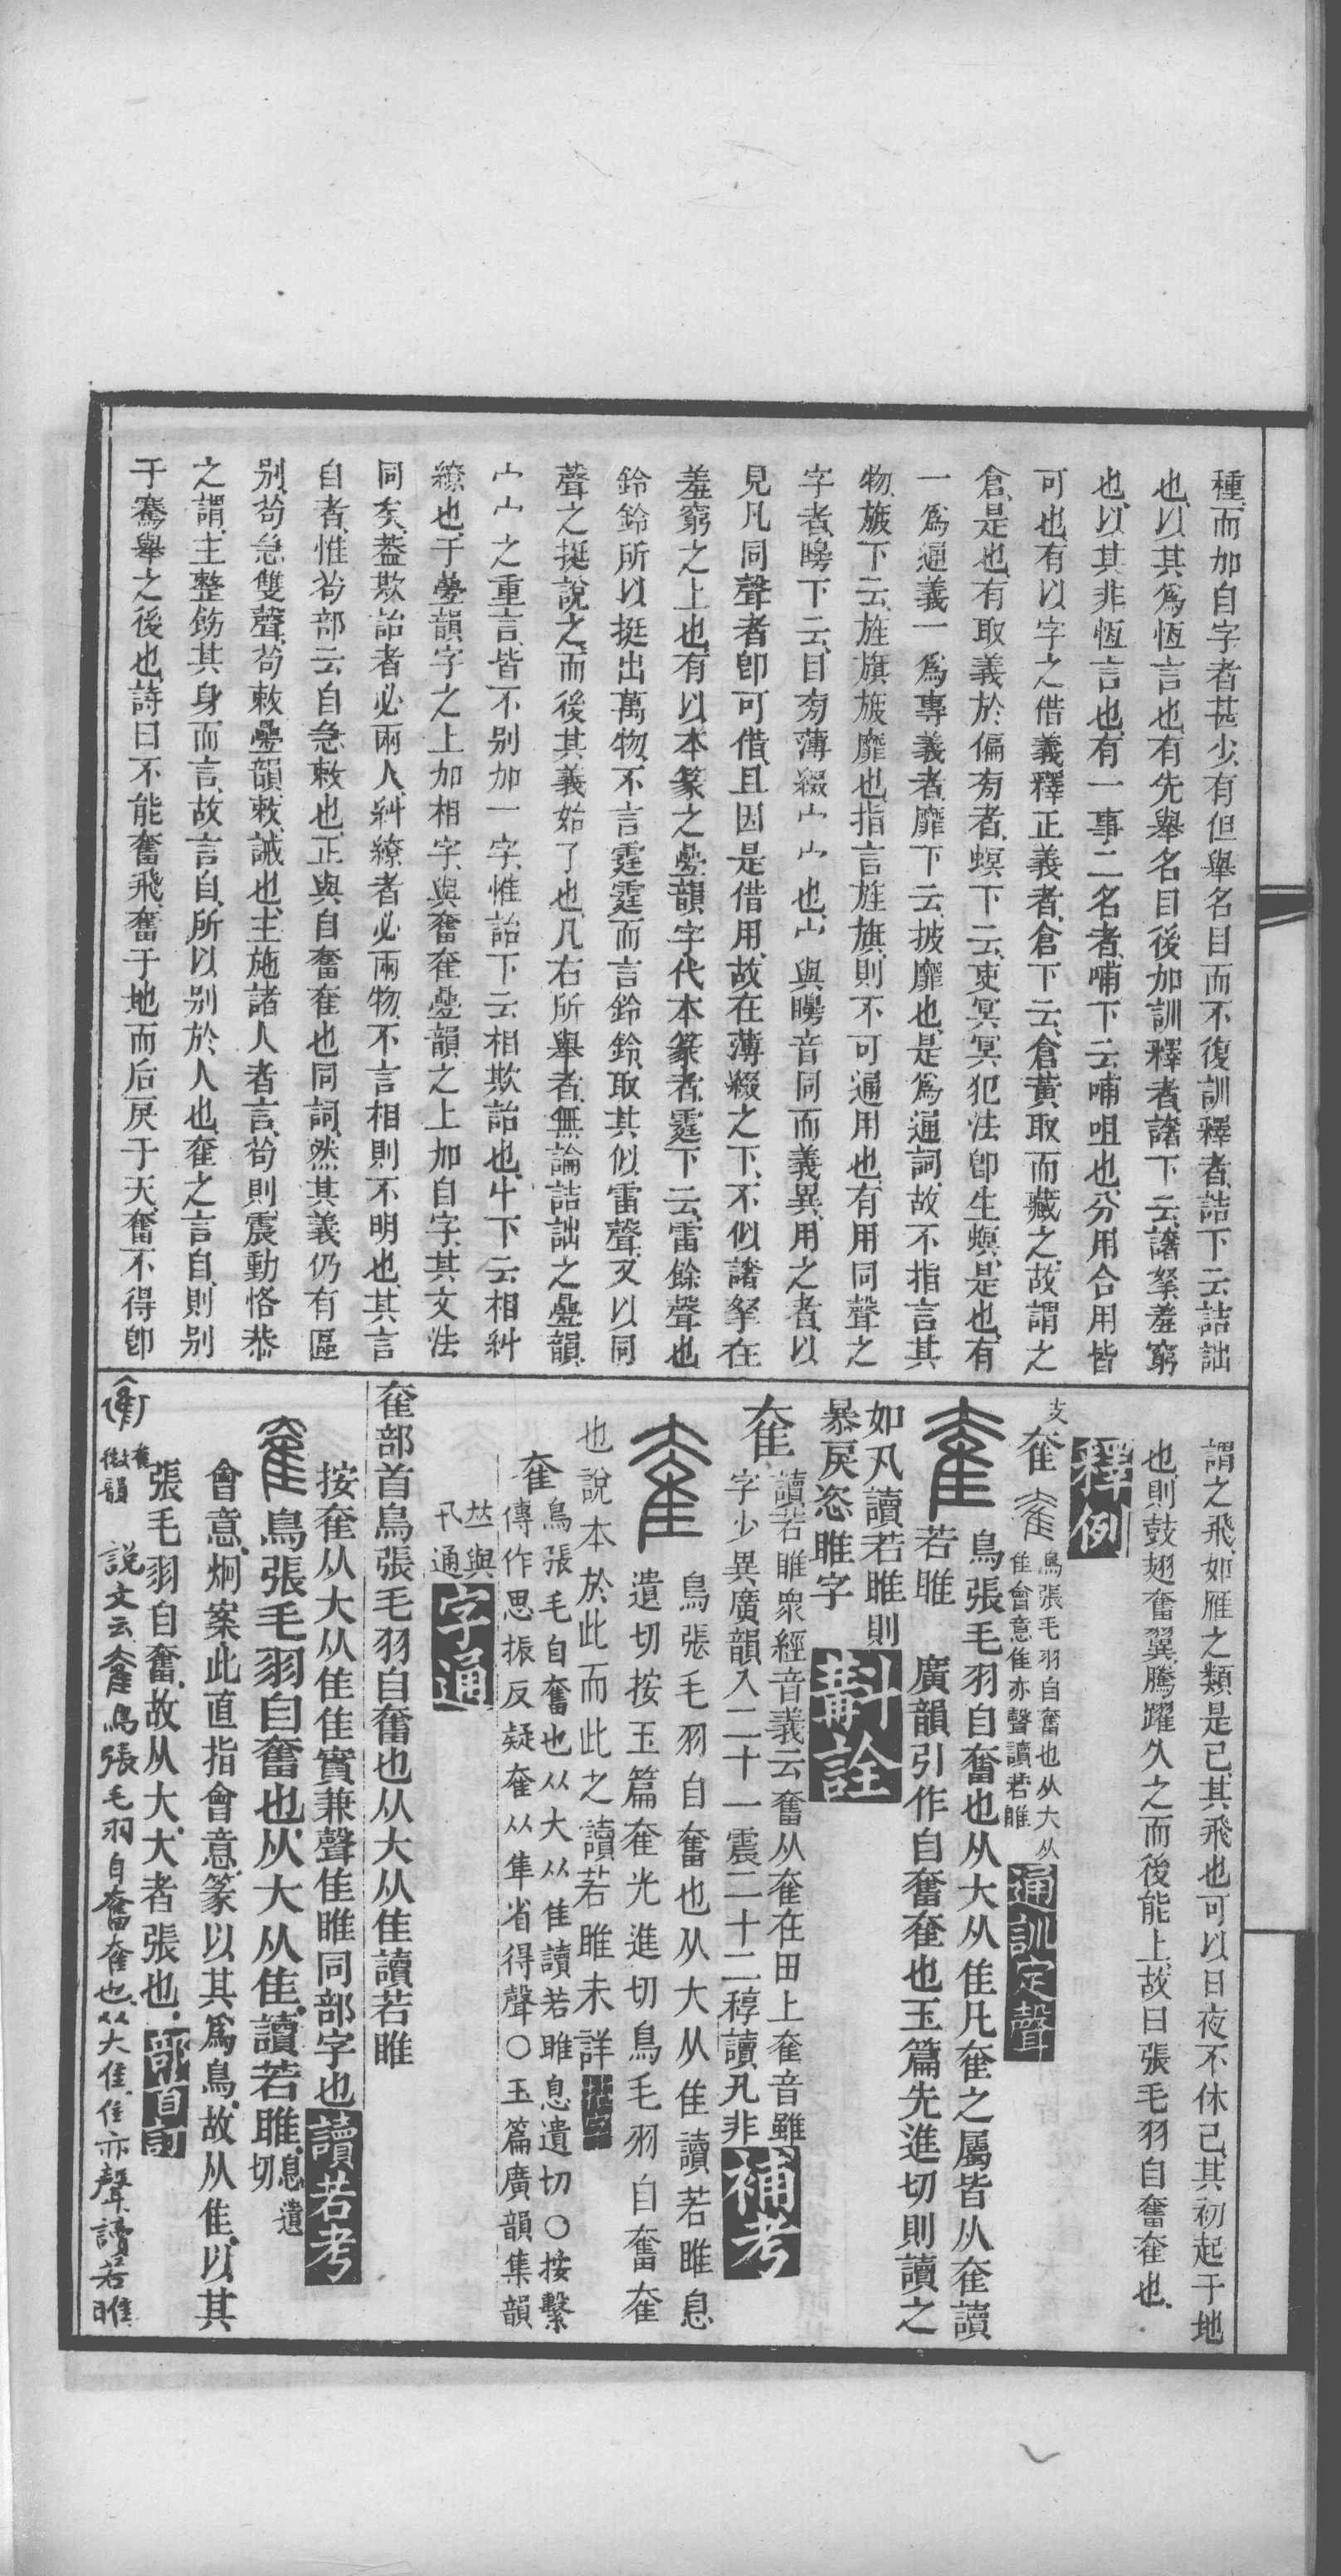 種、而加自字者甚少、有但舉名目而不復訓釋者、詰下云詰詘
也、以其爲恆言也、有先舉名目後加訓釋者、譇下云、譇拏、羞窮
也、以其非恆言也、有一事二名者、哺下云哺咀也、分用合用皆
可也、有以字之借義釋正義者、倉下云、倉黃取而藏之、故謂之
倉、是也、有取義於偏旁者、螟下云、吏冥冥犯法卽生螟、是也、有
一爲通義一爲專義者、靡下云、披靡也、是爲通詞、故不指言其
物、旇下云、旌旗旇靡也、指言旌旗、則不可通用也、有用同聲之
字者、矈下云、目旁薄緻宀宀也、宀與矈音同而義異、用之者、以
見凡同聲者卽可借、且因是借用、故在薄緻之下、不似譇拏在
羞窮之上也、有以本篆之疊韻字代本篆者、霆下云、雷餘聲也
鈴鈴所以挺出萬物、不言霆霆而言鈴鈴、取其似雷聲、又以同
聲之挺說之、而後其義始了也、凡右所舉者、無論詰詘之疊韻、
宀宀之重言、皆不别加一字、惟詒下云相欺詒也、丩下云相糾
繚也、于疊韻字之上加相字、與奮奞疊韻之上加自字、其文法
同矣、葢欺詒者必兩人、糾繚者必兩物、不言相則不明也、其言
自者、惟茍部云自急敕也、正與自奮奞也同詞、然其義仍有區
别、茍急雙聲、茍敕疊韻、敕、誡也、主施諸人者言、茍則震動恪恭
之謂、主整飭其身而言、故言自、所以别於人也、奞之言自、則别
于騫舉之後也、詩曰不能奮飛、奮于地而后戾于天、奮不得卽
謂之飛、如雁之類是已、其飛也可以日夜不休已、其初起于地
也、則鼓翅奮翼、騰躍久之而後能上、故曰張毛羽自奮奞也、
釋例
支 奞 奞 鳥張毛羽自奮也从大从
隹會意隹亦聲讀若睢
通訓定聲
奞 鳥張毛羽自奮也从大从隹凡奞之屬皆从奞讀
若睢 廣韻引作自奮奞也玉篇先進切則讀之
如卂讀若睢則
暴戾恣睢字 斠詮
奞 讀若睢衆經音義云奮从奞在田上奞音雖
字少異廣韻入二十一震二十二稕讀卂非 補考
奞 鳥張毛羽自奮也从大从隹讀若睢息
遺切按玉篇奞先進切鳥毛羽自奮奞
也說本於此而此之讀若睢未詳
奞 鳥張毛自奮也从大从隹讀若睢息遺切○按繫
傳作思振反疑奞从隼省得聲○玉篇廣韻集韻
竝與
卂通 字通
奞部首鳥張毛羽自奮也从大从隹讀若睢
按奞从大从隹隹實兼聲隹睢同部字也 讀若考
奞 鳥張毛羽自奮也、从大从隹、讀若睢、息遺切
會意、炯案此直指會意、篆以其爲鳥、故从隹、以其
張毛羽自奮、故从大、大者張也、 部首訂
奞 微韻 說文云奞鳥張毛羽自奮奞也、从大隹、隹亦聲讀若睢